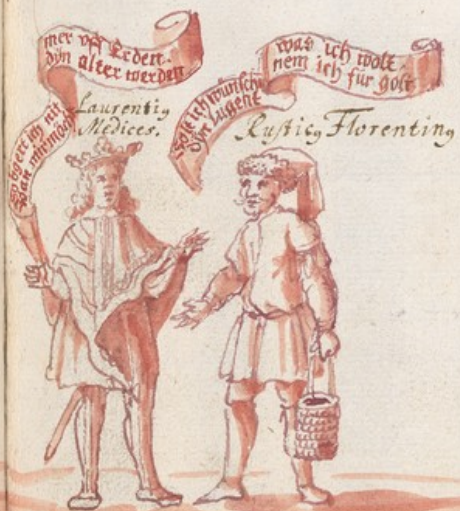 So beger ich nit
wan mir möcht
mer vff Erden.
dyn alter werden
Laurentiꝰ
Medices.
wölte ich wünsch
Din Jugent
was ich wolt.
nem ich für golt
Rusticꝰ Florentinꝰ